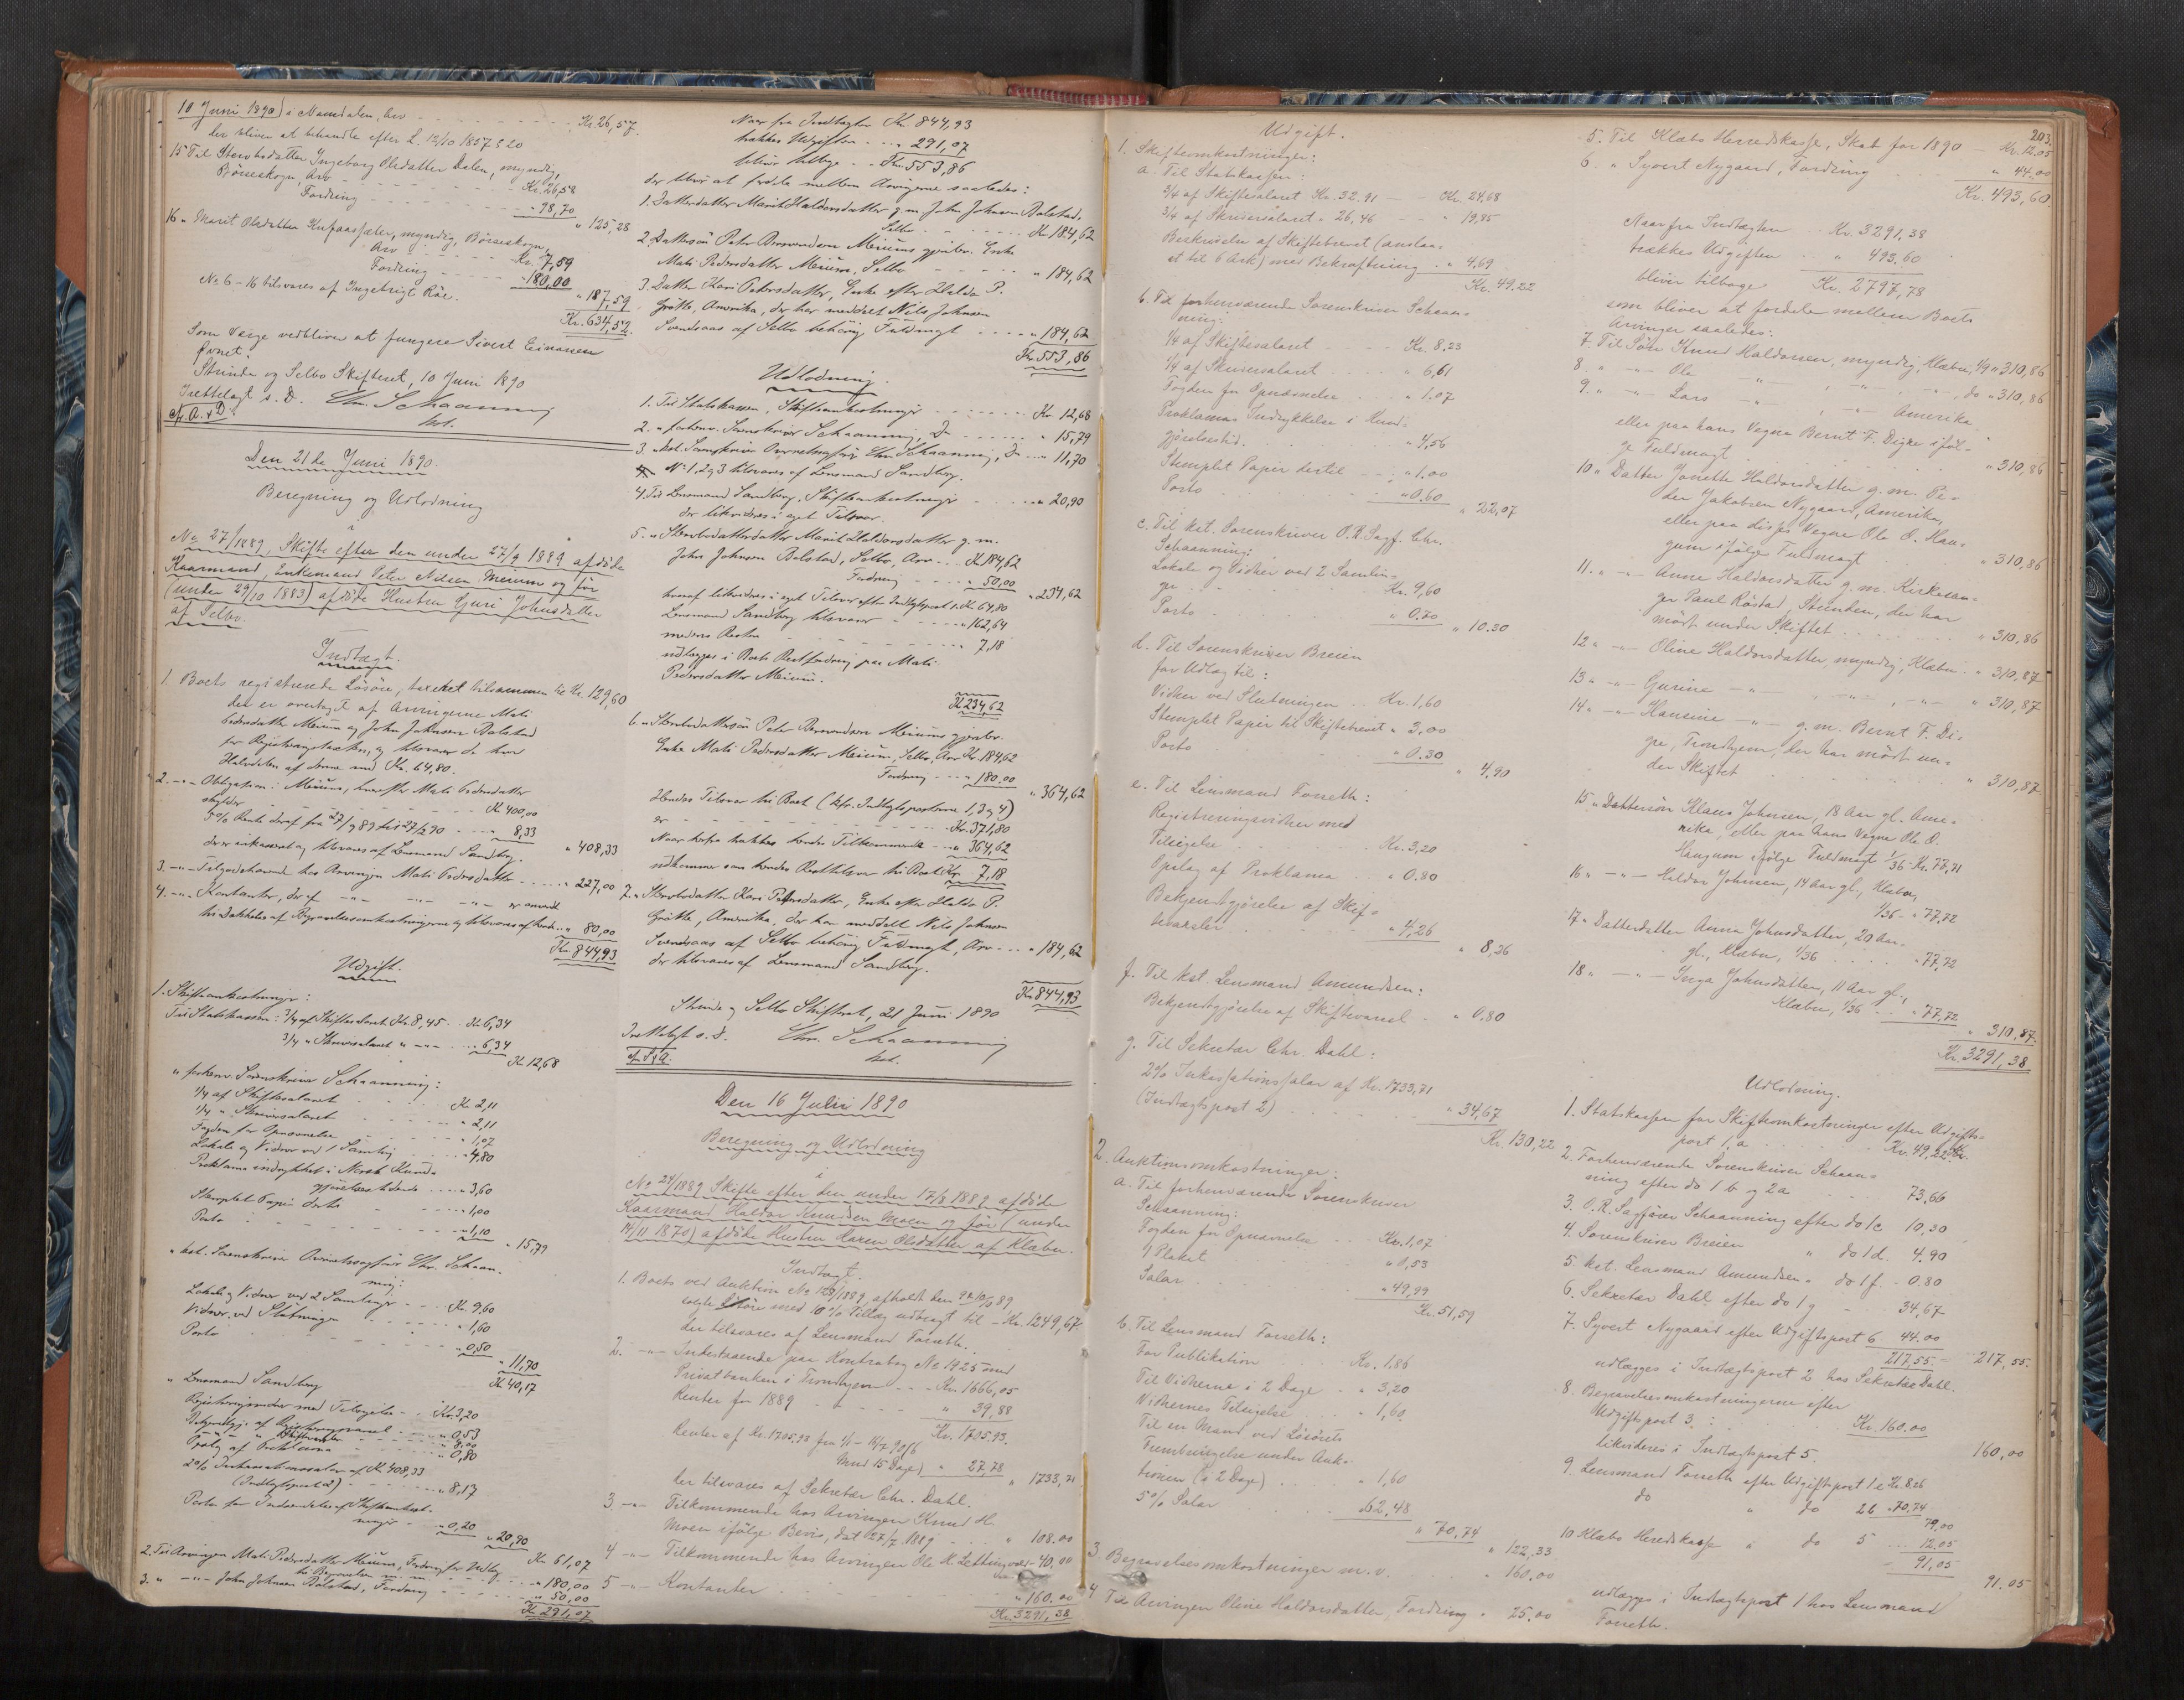 10 Juni 1890) i Namdalen, Arv - - - Kr. 26,57.
der bliver at behandle efter L. 12/10 1857 § 20
15 Til Stervbodatter Ingeborg Olsdatter Dalen, myndig,
Börseskogn Arv - - - Kr. 26,58
Fordring - - - " 98,70
" 125,28
16 " Marit Olsdatter, myndig, Börseskogn,
Arv - - - Kr. 7,59
Fordring - - - " 180,00
" 187,59
No 6-16 tilsvares af Ingebrigt Röe.
Kr. 634,52.
Som Værge vedbliver at fungere Sivert Einarsen
Øvnet.
Strinda og Selbo Skifteret, 10 Juni 1890
Irettelagt s. D. Chr. Schaanning
kst.
Den 21de Juni 1890.
Beregning og Udlodning
i
No 27/1889, Skifte efter den under 27/9 1889 afdöde
Kaarmand, Enkemand Peter Nilsen Meium og för
(under 29/10 1883) afdöde Hustru Guri Johnsdatter
af Selbo.
Indtægt.
1. Boets registrerede Lösöre, taxeret tilsammen til Kr. 129,60
der er overtaget af Arvingerne Mali
Pedersdatter Meium og John Johnsen Balstad
for Registreringstaxten, og tilsvarer de hver
Halvdelen af denne med Kr. 64,80.
2. -"- Obligation i Meium, hvorefter Mali Pedersdatter
skylder - - - Kr. 400,00
5% Rente deraf fra 27/9 89 til 27/2 90 - - - " 8,33
" 408,33
der er indkasseret og tilsvares af Lensmand Sandberg.
3. -"- Tilgodehavende hos Arvingen Mali Pedersdatter - - - " 227,00
4. -"- Kontanter, der af -"- -"- -"- er anvendt
til Dækkelse af Begravelsesomkostningerne og tilsvares af hende - " 80,00
Kr. 844,93
Udgift.
1. Skifteomkostninger:
Til Statskassen: 3/4 af Skiftesalaret Kr. 8,45 - Kr. 6,34
3/4 " Skriversalaret " -"- - " 6,34
Kr. 12,68
" forhenv. Sorenskriver Schaanning:
1/4 af Skiftesalaret - - - Kr. 2,11
1/4 " Skriversalaret - - - " 2,11
Fogden for Opnævnelse - - - " 1,07
Lokale og Vidner ved 1 Samling - - - " 4,80
Proklama indrykket i Norsk Kund-
gjörelsestidende - - - " 3,60
Stemplet Papir dertil - - - " 1,00
Porto - - - " 1,10
" 15,79
" kst. Sorenskriver Overretssagförer Chr. Schaan-
ning:
Lokale og Vidner ved 2 Samlinger - - - Kr. 9,60
Vidner ved Slutningen - - - " 1,60
Porto - - - " 0,50
" 11,70
Kr. 40,17
" Lensmand Sandberg
Registreringsvidner med Tilsigelse - - Kr. 3,20
Bekjendtgj. af Registreringsvarsel - - " 0,53
-"- " Skiftevarsler - - " 8,00
Opslag af Proklama - - " 0,80
2% Inkassationssalær af Kr. 408,33
(Indtægtspost 2) - - - " 8,17
Porto for Indsendelse af Skifteomkost-
ninger - - " 0,20
" 20,90
Kr. 61,07
2. Til Arvingen Mali Pedersdatter Meium, Fordring for Udlæg
til Begravelsen m. m. - - - " 180,00
3. " -"- John Johnsen Balstad, Fordring - - - " 50,00
Kr. 291,07
Naar fra Indtægten Kr. 844,93
trækkes Udgiften - - " 291,07
bliver tilbage - - Kr. 553,86
der bliver at fordele mellem Arvingerne saaledes:
1. Datterdatter Marit Haldorsdatter g. m. John Johnsen Balstad,
Selbo - - - Kr. 184,62
2. Dattersön Peter Bernardsen Meiums gjenlev. Enke
Mali Pedersdatter Meium, Selbo - - - " 184,62
3. Datter Kari Petersdatter, Enke efter Haldo P.
Grötte, Amerika, der har meddelt Nils Johnsen
Svendsaas af Selbo behörig Fuldmagt - - - " 184,62
Kr. 553,86
Udlodning.
1. Til Statskassen, Skifteomkostninger - - - Kr. 12,68
2. " forhenv. Sorenskriver Schaanning, Do - - - " 15,79
3. " kst. Sorenskriver Overretssagförer Chr. Schaanning, Do - " 11,70
No 1, 2 og 3 tilsvares af Lensmand Sandberg.
4. Til Lensmand Sandberg, Skifteomkostninger - - - " 20,90
der likvideres i eget Tilsvar.
5. " Stervbodatterdatter Marit Haldorsdatter g. m.
John Johnsen Balstad, Selbo, Arv - - Kr. 184,62
Fordring - - - " 50,00
" 234,62
hvoraf likvideres i eget Tilsvar efter Indtægtspost 1, Kr. 64,80
Lensmand Sandberg tilsvarer - - - " 162,64
medens Resten - - - " 7,18
udlægges i Boets Restfordring paa Mali
Pedersdatter Meium.
Kr. 234,62
6. " Stervbodattersön Peter Bernardsen Meiums gjenlev.
Enke Mali Pedersdatter Meium, Selbo, Arv Kr. 184,62
Fordring - - - " 180.00
" 364,62
Hendes Tilsvar til Boet (kfr. Indtægtsposterne 1, 3 og 4)
er - - - Kr. 371,80
Naar herfra trækkes hendes Tilkommende - - - " 364,62
udkommer som hendes Resttilsvar til Boet Kr. 7,18
7. " Stervbodatter Kari Petersdatter, Enke efter Haldo P.
Grötte, Amerika, der har meddelt Nils Johnsen
Svendsaas af Selbo behörig Fuldmagt, Arv - - - " 184,62
der tilsvares af Lensmand Sandberg.
Kr. 844,93
Strinda og Selbo Skifteret, 21 Juni 1890
Irettelagt s. D. Chr. Schaanning
kst.
Den 16 Juli 1890
Beregning og Udlodning
i
No 24/1889 Skifte efter den under 17/8 1889 afdöde
Kaarmand Haldor Knudsen Moen og för (under
14/11 1870) afdöde Hustru Karen Olsdatter af Klæbu.
Indtægt.
1. Boets ved Auktion No 128/1889, afholdt den 9 & 10/10 89
solgte Lösöre med 10% Tillæg udbragt til - Kr. 1249,67.
der tilsvares af Lensmand Forseth.
2. -"- Indestaaende paa Kontrabog No 1925 ved
Privatbanken i Trondhjem - - Kr. 1666,05
Renter for 1889 - - - " 39,88
Kr. 1705,93.
Renter af Kr. 1705,93 fra 1/1 - 16/7 90 (6
Mnd 15 Dage) " 27,78
" 1733,71
der tilsvares af Sekretær Chr. Dahl.
3. -"- Tilkommende hos Arvingen Knud H.
Moen ifölge Bevis, dat. 27/7 1889 - - " 108.00
4 -"- Tilkommende hos Arvingen Ole H. Lettingvold - 40,00
5 -"- Kontanter - - - " 160.00
Kr. 3291,38
203.
Udgift.
1. Skifteomkostninger:
a. Til Statskassen:
3/4 af Skiftesalaret Kr. 32.91 - - Kr. 24,68
3/4 af Skriversalaret " 26,46 - - " 19,85
Beskrivelse af Skiftebrevet (anslaa-
et til 6 Ark) med Bekræftning. " 4,69
Kr. 49.22
b. Til forhenværende Sorenskriver Schaan-
ning:
1/4 af Skiftesalaret - - - Kr. 8.23
1/4 af Skriversalaret - - - " 6,61
Fogden for Opnævnelse - - - " 1.07
Proklamas Indrykkelse i Kund-
gjörelsestid. " 4,56
Stemplet Papir dertil - - " 1.00
Porto " 0.60
" 22,07
c. Til kst. Sorenskriver O.R.Sagf. Chr.
Schaanning:
Lokale og Vidner ved 2 Samlin-
ger Kr. 9,60
Porto " 0.70
" 10.30
d. Til Sorenskriver Breien
for Udlæg til:
Vidner ved Slutningen - Kr. 1,60
Stemplet Papir til Skiftebrevet " 3,00
Porto " 0.30
" 4,90
e. Til Lensmand Forseth:
Registreringsvidner med
Tilsigelse Kr. 3,20
Opslag af Proklama " 0.80
Bekjendtgjörelse af Skif-
tevarsler " 4,26
" 8,26
f. Til kst. Lensmand Amundsen:
Bekjendtgjörelse af Skiftevarsel - " 0.80
g. Til Sekretær Chr. Dahl:
2% Inkassationssalær af Kr. 1733,71
(Indtægtspost 2) - - - " 34,67
Kr. 130,22
2. Auktionsomkostninger:
a. Til forhenværende Sorenskriver
Schaanning:
Fogden for Opnævnelse - - Kr. 1,07
1 Plakat " 0,53
Salær " 49,99
Kr. 51,59
b. Til Lensmand Forseth:
For Publikation Kr. 1,86
Til Vidnerne i 2 Dage " 3,20
Vidnernes Tilsigelse " 1,60
Til en Mand ved Lösörets
Frembringelse under Auk-
tionen (i 2 Dage) " 1,60
5% Salær " 62,48
" 70,74
" 122,33
3. Begravelsesomkostninger m. v. " 160.00
4 Til Arvingen Oline Haldorsdatter, Fordring " 25.00
5. Til Klæbo Herredskasse, Skat for 1890 - Kr. 12.05
6. " Syvert Nygaard, Fordring " 44.00
Kr. 493,60
Naar fra Indtægten Kr. 3291,38
trækkes Udgiften " 493.60
bliver tilbage Kr. 2797,78
som bliver at fordele mellem Boets
Arvinger saaledes:
7. Til Sön Knud Haldorsen, myndig, Klæbu, 1/9 " 310,86
8. " -"- Ole -"- , -"- , -"- , do " 310,86
9. " -"- Lars -"- , -"- Amerika
eller paa hans Vegne Bernt F. Digre iföl-
ge Fuldmagt " 310,86
10 " Datter Jonette Haldorsdatter g. m. Pe-
der Jakobsen Nygaard, Amerika,
eller paa disses Vegne Ole O. Hau-
gum ifölge Fuldmagt " 310,86
11. " -"- Anne Haldorsdatter g. m. Kirkesan-
ger Paul Röstad, Strinden, der har
mödt under Skiftet " 310,86
12 " -"- Oline Haldorsdatter, myndig, Klæbu. " 310,87
13 " -"- Gurine -"- , -"- , -"- " 310,87
14 " -"- Hansine -"- g. m. Bernt F. Di-
gre, Trondhjem, der har mödt un-
der Skiftet " 310,87
15 " Dattersön Klaus Johnsen, 18 Aar gl. Ame-
rika, eller paa hans Vegne Ole O.
Haugum ifölge Fuldmagt 1/36 - Kr. 77,71
16 " -"- Haldor Johnsen, 14 Aar gl., Klæbu,
1/36 - " 77,72
17 " Datterdatter Anna Johnsdatter, 20 Aar
gl., Klæbu, 1/36 " 77,72
18 " -"- Inga Johnsdatter, 11 Aar gl.,
Klæbu, 1/36 " 77,72
" 310,87.
Kr. 3291,38
Udlodning.
1. Statskassen for Skifteomkostninger efter Udgifts-
post 1, a Kr. 49,22
2. Forhenværende Sorenskriver Schaan-
ning efter do 1 b og 2 a 73,66
3. O. R. Sagförer Schaanning efter do 1 c 10,30
4. Sorenskriver Breien " do 1 d. 4.90
5. kst. Lensmand Amundsen " do 1 f. - 0.80
6. Sekretær Dahl efter do 1 g - 34,67
7. Syvert Nygaard efter Udgiftspost 6 44.00
217,55. - 217,55.
udlægges i Indtægtspost 2 hos Sekretær Dahl.
8. Begravelsesomkostningerne efter
Udgiftspost 3 Kr. 160.00
likvideres i Indtægtspost 5. 160,00
9. Lensmand Forseth efter Udgiftspost 1 e Kr. 8.26
do " do 2 b " 70,74
79,00
10 Klæbo Herredskasse " do 5 12.05
91,05
91.05
udlægges i Indtægtspost 1 hos Lensmand
Forseth.